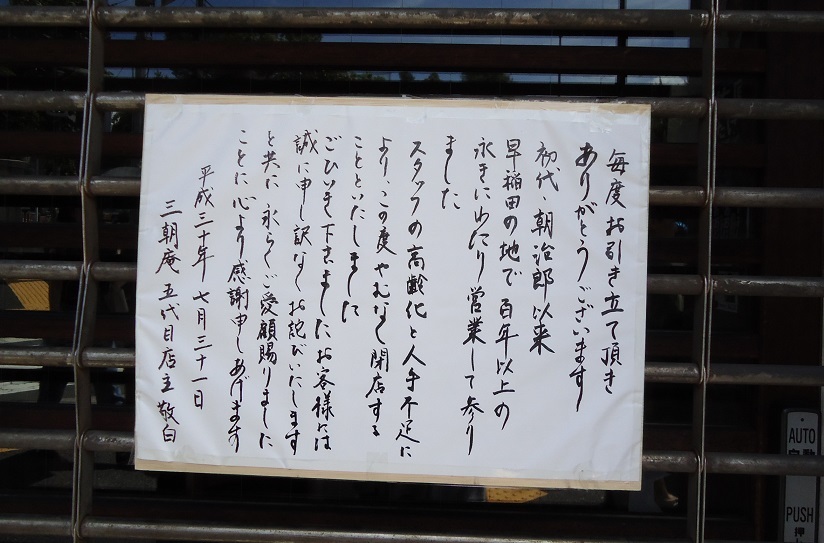 毎度お引き立て頂き
ありがとうございます
初代、朝治郎以来
早稲田の地で百年以上の
永きにわたり営業して参り
ました
スタッフの高齢化と人手不足に
より、この度やむなく閉店する
ことといたしました
ごひいき下さいましたお客様には
誠に申し訳なくお詫びいたします
と共に永らくご愛顧賜りました
ことに心より感謝申しあげます
平成三十年七月三十一日
三朝庵 五代目店主 敬白
AUTO
PUSH
押